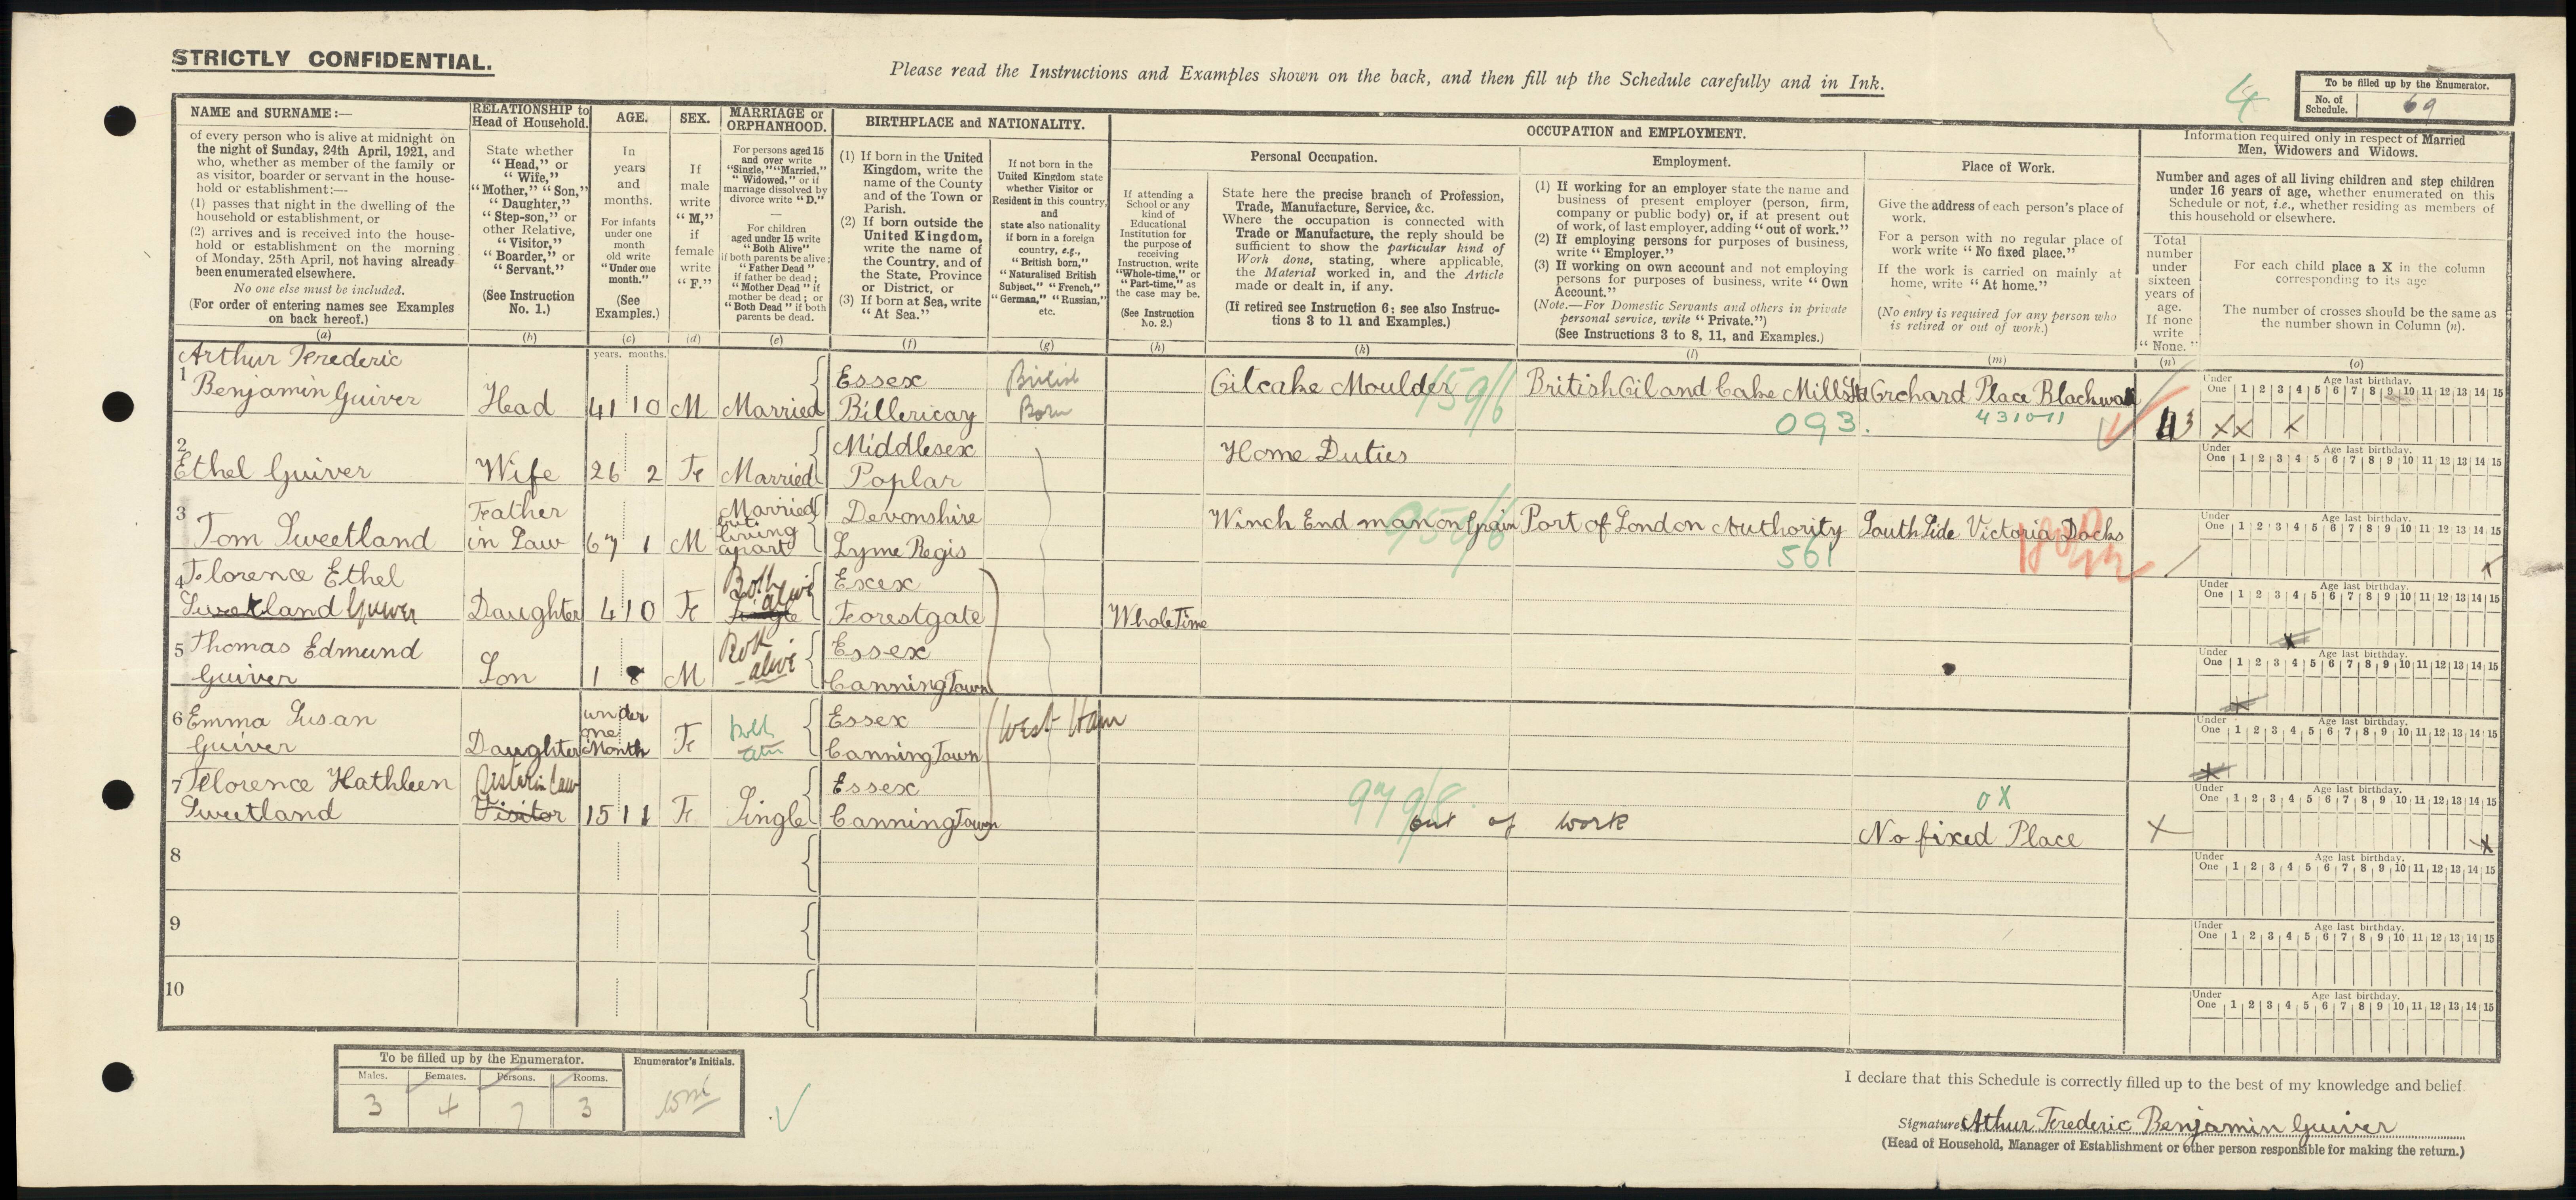 STRICTLY CONFIDENTIAL.
Please read the Instructions and Examples shown on the back, and then fill up the Schedule carefully and in Ink.
4
To be filled up by the Enumerator.
No. of Schedule. 69
NAME and SURNAME:—
of every person who is alive at midnight on
the night of Sunday, 24th April, 1921, and
who, whether as member of the family or
as visitor, boarder or servant in the house-
hold or establishment:—
(1) passes that night in the dwelling of the
household or establishment, or
(2) arrives and is received into the house-
hold or establishment on the morning
of Monday, 25th April, not having already
been enumerated elsewhere.
No one else must be included.
(For order of entering names see Examples
on back hereof.)
(a)
RELATIONSHIP to
Head of Household.
State whether
"Head," or
"Wife,"
"Mother," "Son,"
"Daughter,"
"Step-son," or
other Relative,
"Visitor,"
"Boarder," or
"Servant."
(See Instruction
No. 1.)
(b)
AGE.
In
years
and
months.
For infants
under one
month
old write
"Under one
month."
(See
Examples.)
(c)
SEX.
If
male
write
"M,"
if
female
write
"F."
(d)
MARRIAGE or
ORPHANHOOD.
For persons aged 15
and over write
"Single," "Married,"
"Widowed," or if
marriage dissolved by
divorce write "D."
—
For children
aged under 15 write
"Both Alive"
if both parents be alive;
"Father Dead"
if father be dead;
"Mother Dead" if
mother be dead; or
"Both Dead" if both
parents be dead.
(e)
BIRTHPLACE and NATIONALITY.
(1) If born in the United
Kingdom, write the
name of the County
and of the Town or
Parish.
(2) If born outside the
United Kingdom,
write the name of
the Country, and of
the State, Province
or District, or
(3) If born at Sea, write
"At Sea."
(f)
If not born in the
United Kingdom state
whether Visitor or
Resident in this country,
and
state also nationality
if born in a foreign
country, e.g.,
"British born,"
"Naturalised British
Subject," "French,"
"German," "Russian,"
etc.
(g)
OCCUPATION and EMPLOYMENT.
If attending a
School or any
kind of
Educational
Institution for
the purpose of
receiving
Instruction, write
"Whole-time," or
"Part-time," as
the case may be.
(See Instruction
No. 2.)
(h)
Personal Occupation.
State here the precise branch of Profession,
Trade, Manufacture, Service, &c.
Where the occupation is connected with
Trade or Manufacture, the reply should be
sufficient to show the particular kind of
Work done, stating, where applicable,
the Material worked in, and the Article
made or dealt in, if any.
(If retired see Instruction 6; see also Instruc-
tions 3 to 11 and Examples.)
(k)
Employment.
(1) If working for an employer state the name and
business of present employer (person, firm,
company or public body) or, if at present out
of work, of last employer, adding "out of work."
(2) If employing persons for purposes of business,
write "Employer."
(3) If working on own account and not employing
persons for purposes of business, write "Own
Account."
(Note.—For Domestic Servants and others in private
personal service, write "Private.")
(See Instructions 3 to 8, 11, and Examples.)
(l)
Place of Work.
Give the address of each person's place of
work.
For a person with no regular place of
work write "No fixed place."
If the work is carried on mainly at
home, write "At home."
(No entry is required for any person who
is retired or out of work.)
(m)
Information required only in respect of Married
Men, Widowers and Widows.
Number and ages of all living children and step children
under 16 years of age, whether enumerated on this
Schedule or not, i.e., whether residing as members of
this household or elsewhere.
Total
number
under
sixteen
years of
age.
If none
write
"None."
(n)
For each child place a X in the column
corresponding to its age
The number of crosses should be the same as
the number shown in Column (n).
(o)
years. months.
1 Arthur Frederic
Benjamin Guiver Head 41 10 M Married Essex
Billericay British Born Oilcake Moulder 159/6 British Oil and Cake Mills Ltd 093. Orchard Place Blackwall 431011 3 X X X
Under One 1 2 3 4 5 6 7 8 9 10 11 12 13 14 15 Age last birthday.
2 Ethel Guiver Wife 26 2 Fe Married Middlesex
Poplar Home Duties
Under One 1 2 3 4 5 6 7 8 9 10 11 12 13 14 15 Age last birthday.
3 Tom Sweetland Father in Law 67 1 M Married but living apart Devonshire
Lyme Regis Winch End man on Grain Port of London Authority 561 South Side Victoria Docks X
Under One 1 2 3 4 5 6 7 8 9 10 11 12 13 14 15 Age last birthday.
4 Florence Ethel
Sweetland Guiver Daughter 4 10 Fe Single Both alive Esex
Forestgate Whole Time X
Under One 1 2 3 4 5 6 7 8 9 10 11 12 13 14 15 Age last birthday.
5 Thomas Edmund
Guiver Son 1 8 M Both alive Essex
Canning Town X
Under One 1 2 3 4 5 6 7 8 9 10 11 12 13 14 15 Age last birthday.
6 Emma Susan
Guiver Daughter under one Month Fe Both Essex
Canning Town West Ham X
Under One 1 2 3 4 5 6 7 8 9 10 11 12 13 14 15 Age last birthday.
7 Florence Kathleen
Sweetland Sister in Law Visitor 15 11 Fe Single Essex
Canning Town 979/8 out of work 0X No fixed Place X X
Under One 1 2 3 4 5 6 7 8 9 10 11 12 13 14 15 Age last birthday.
8
Under One 1 2 3 4 5 6 7 8 9 10 11 12 13 14 15 Age last birthday.
9
Under One 1 2 3 4 5 6 7 8 9 10 11 12 13 14 15 Age last birthday.
10
Under One 1 2 3 4 5 6 7 8 9 10 11 12 13 14 15 Age last birthday.
To be filled up by the Enumerator. Enumerator's Initials.
Males. Females. Persons. Rooms.
3 4 7 3
I declare that this Schedule is correctly filled up to the best of my knowledge and belief.
Signature Athur Frederic Benjamin Guiver
(Head of Household, Manager of Establishment or other person responsible for making the return.)